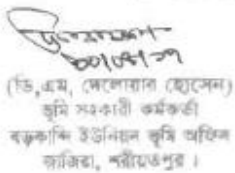 ৩০/০৪/১৭
(ডি,এম, দেলোয়ার হোসেন)
ভূমি সহকারী কর্মকর্তা
বড়কান্দি ইউনিয়ন ভূমি অফিস
জাজিরা, শরীয়তপুর ।